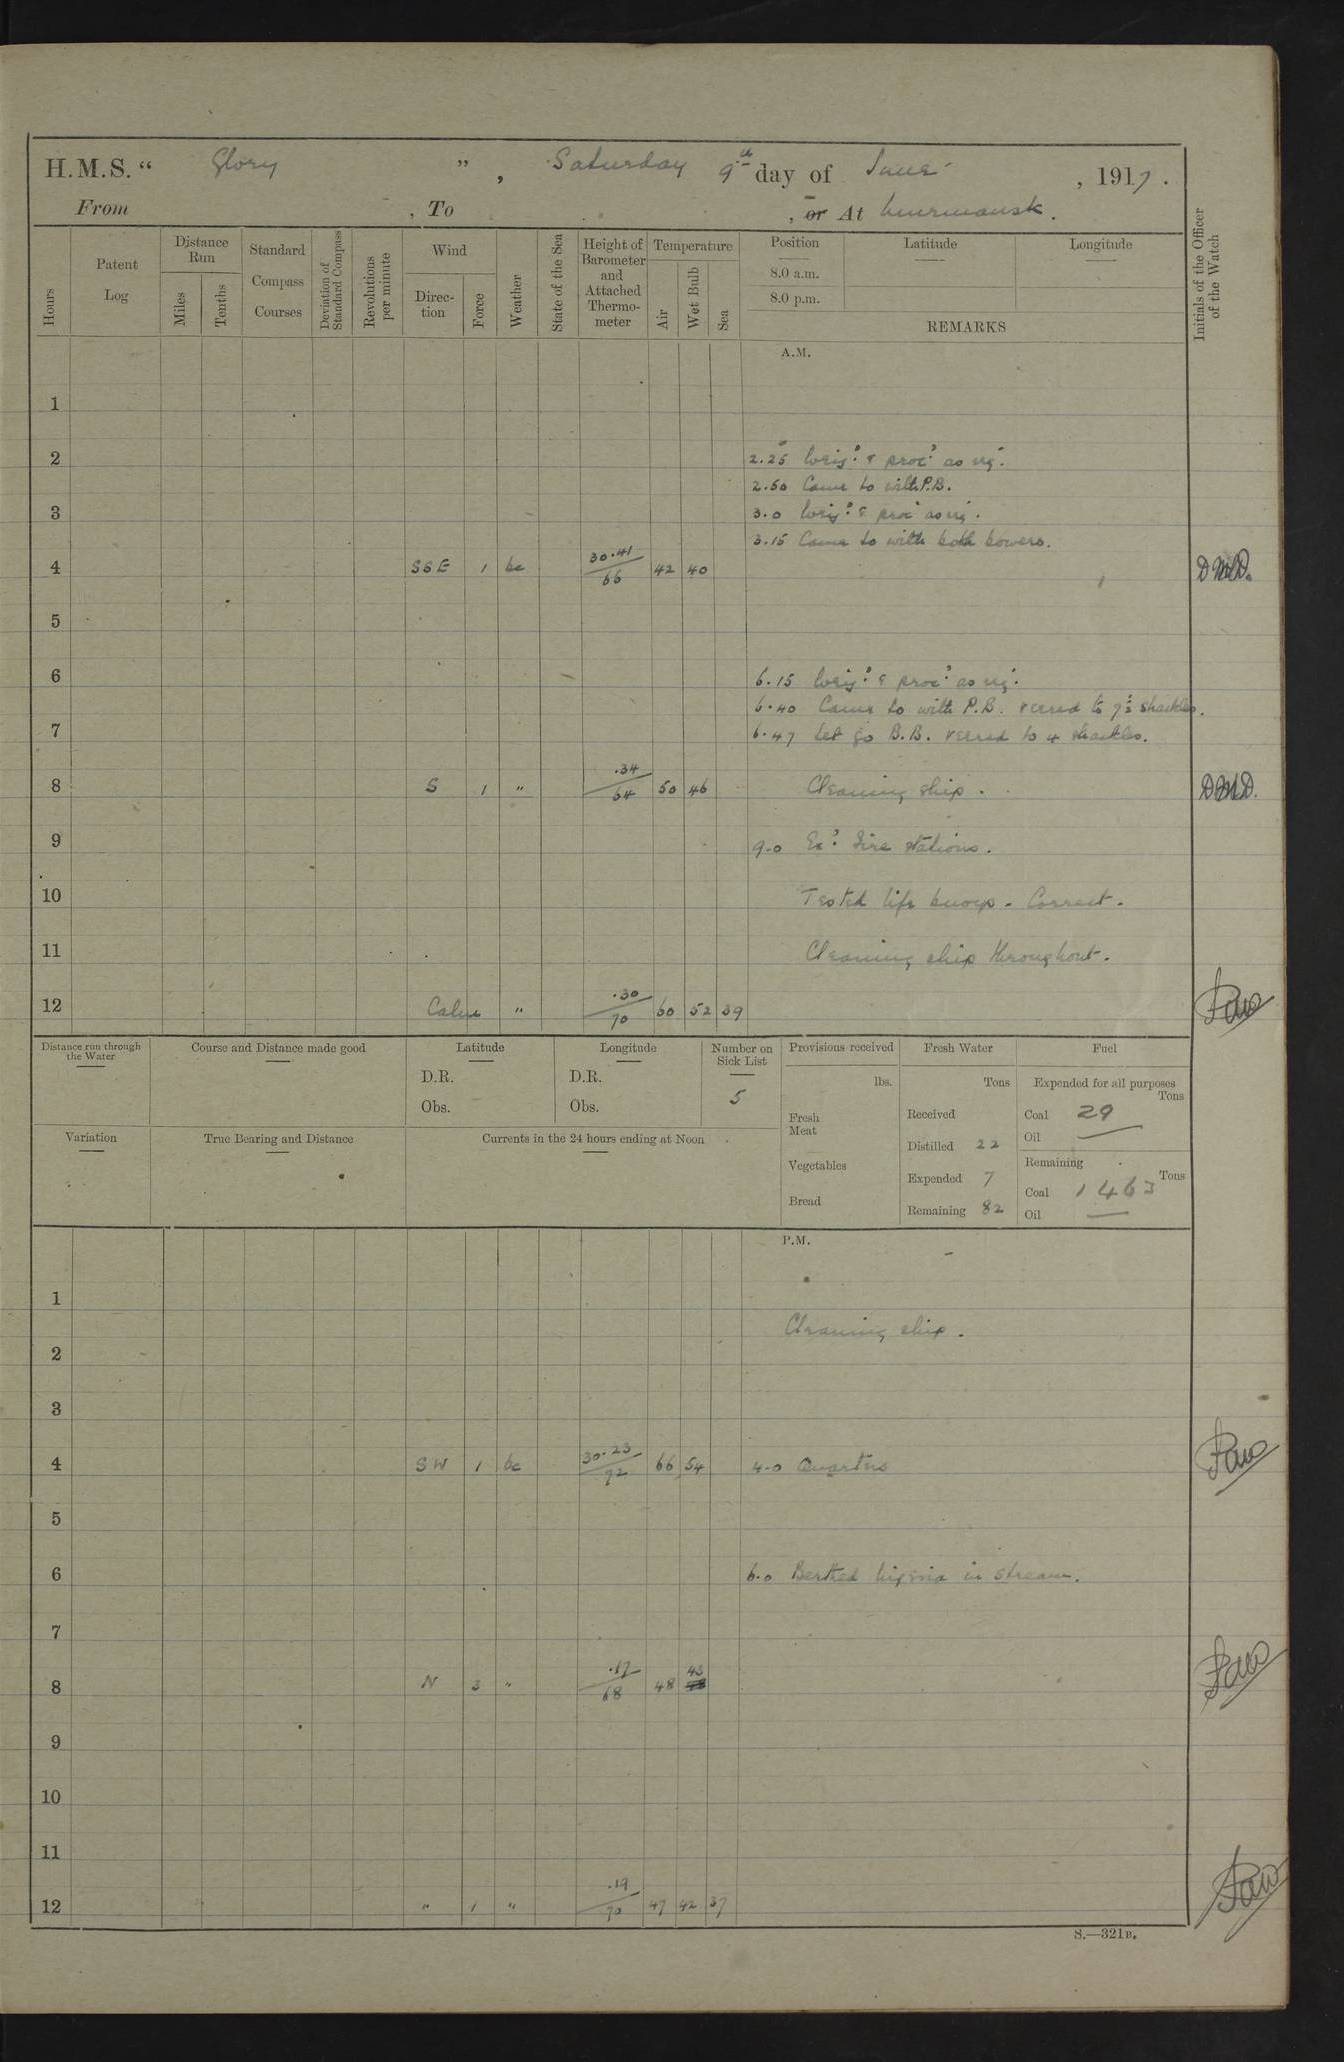 H.M.S. “ Glory ” , Saturday 9th day of June , 1917 .
From , To , or At Murmansk .
Hours
Patent Log
Distance Run
Miles
Tenths
Standard Compass Courses
Deviation of Standard Compass
Revolutions per minute
Wind
Direc- tion
Force
Weather
State of the Sea
Height of Barometer and Attached Thermo- meter
Temperature
Air
Wet Bulb
Sea
Position
8.0 a.m.
8.0 p.m.
Latitude
Longitude
REMARKS
Initials of the Officer of the Watch
A.M.
1
2 2.25 Weig:d & proc:d as req.
2.50 Came to with P.B.
3 3.0 Weig:d & proc:d as req.
3.15 Came to with both bowers.
4 SSE 1 bc 30.41 66 42 40
5
6 6.15 Weig:d & proc:d as req.
6.40 Came to with P.B. veered to 7½ shackles.
7 6.47 Let go B.B. veered to 4 shackles.
8 S 1 " .34 64 50 46 Cleaning ship .
9 9.0 Ex:d Fire stations .
10 Tested life buoys - Correct .
11 Cleaning ship throughout .
12 Calm " .30 70 60 52 39
Distance run through the Water
Course and Distance made good
Latitude
D.R.
Obs.
Longitude
D.R.
Obs.
Number on Sick List
5
Provisions received
lbs.
Fresh Meat
Vegetables
Bread
Fresh Water
Tons
Received
Distilled 22
Expended 7
Remaining 82
Fuel
Expended for all purposes
Tons
Coal 29
Oil —
Remaining
Tons
Coal 1463
Oil —
Variation
True Bearing and Distance
Currents in the 24 hours ending at Noon
P.M.
1
Cleaning ship .
2
3
4 SW 1 bc 30.23 72 66 54 4.0 Quarters
5
6 6.0 Berthed in stream .
7
8 N 3 " .17 68 48 43
9
10
11
12 " 1 " .19 70 47 42 37
S.—321B.